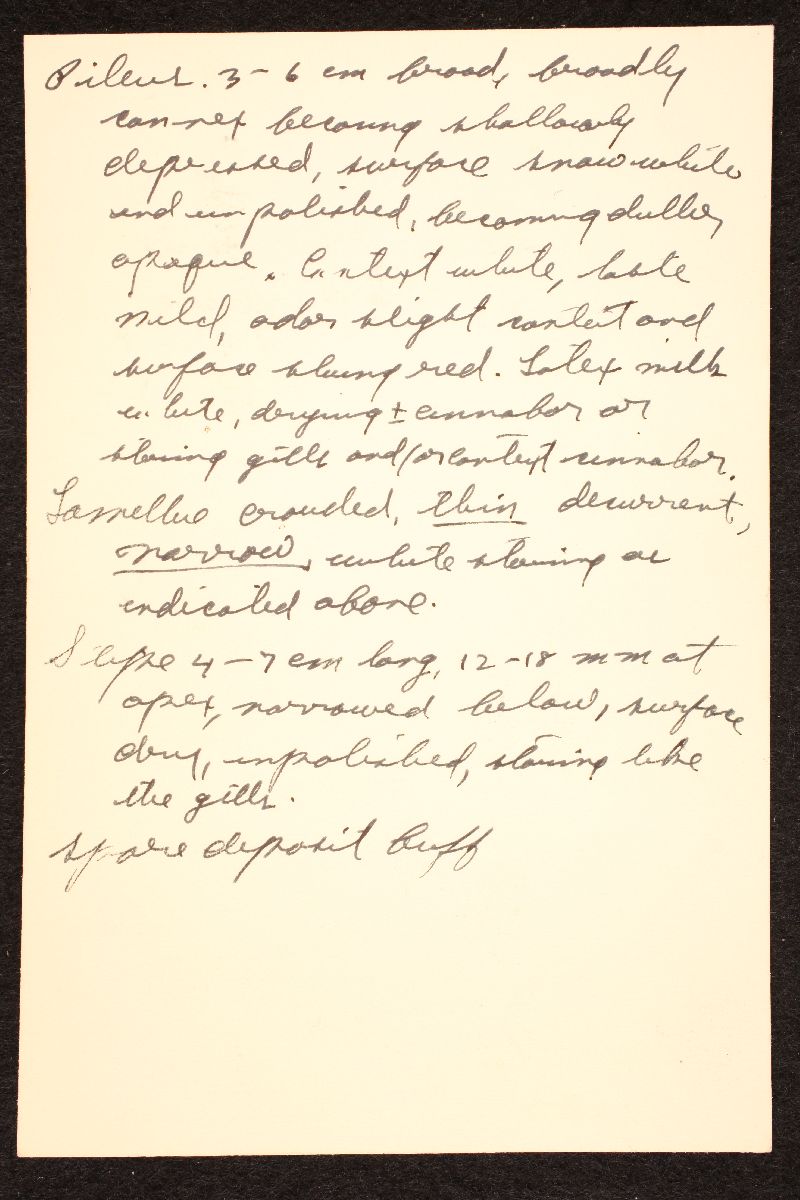 Pileus. 3-6 cm broad, broadly
convex becoming shallowly
depressed, surface snow white
and unpolished, becoming duller,
opaque. Context white, taste
mild, odor slight context and
surface staining red. Latex milk
white, drying ± cinnabar or
staining gills and/or context cinnabar.
Lamellae crowded, thin decurrent,
narrow, white staining as
indicated above.
Stipe 4-7 cm long, 12-18 mm at
apex, narrowed below, surface
dry, unpolished, staining like
the gills.
spore deposit buff